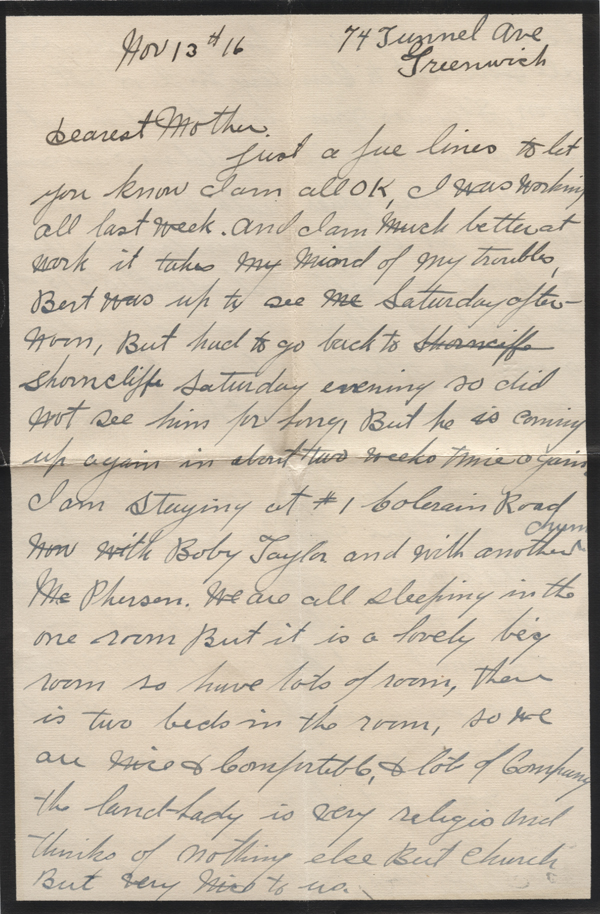 Nov 13th 16
74 Tunnel Ave
Greenwich
Dearest Mother.
Just a fue lines to let
you know I am all OK, I was working
all last week. and I am much better at
work it takes my mind of my troubles,
Bert was up to see me Saturday after-
noon, But had to go back to Shorncliffe
Shorncliffe Saturday evening so did
not see him for long, But he is coming
up again in about two weeks time again.
I am staying at #1 Colerain Road
now with Boby Taylor and with another chum
Mc Pherson. We are all sleeping in the
one room But it is a lovely big
room so have lots of room, there
is two beds in the room, so we
are nice & Comfortible, & lots of Company
the land-lady is very religio and
thinks of nothing else But Church.
But very nice to us.